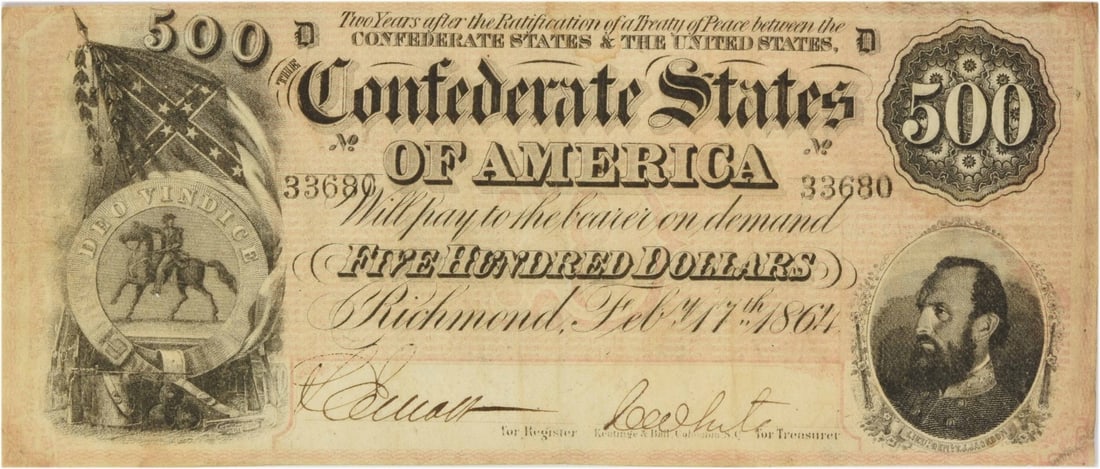 500 D Two Years after the Ratification of a Treaty of Peace between the D
CONFEDERATE STATES & THE UNITED STATES,
THE Confederate States 500
No OF AMERICA No
33680 33680
Will pay to the bearer on demand
DEO VINDICE
FIVE HUNDRED DOLLARS
Richmond, Feby. 17th. 1864
for Register Keatinge & Ball, Columbia, S.C. for Treasurer